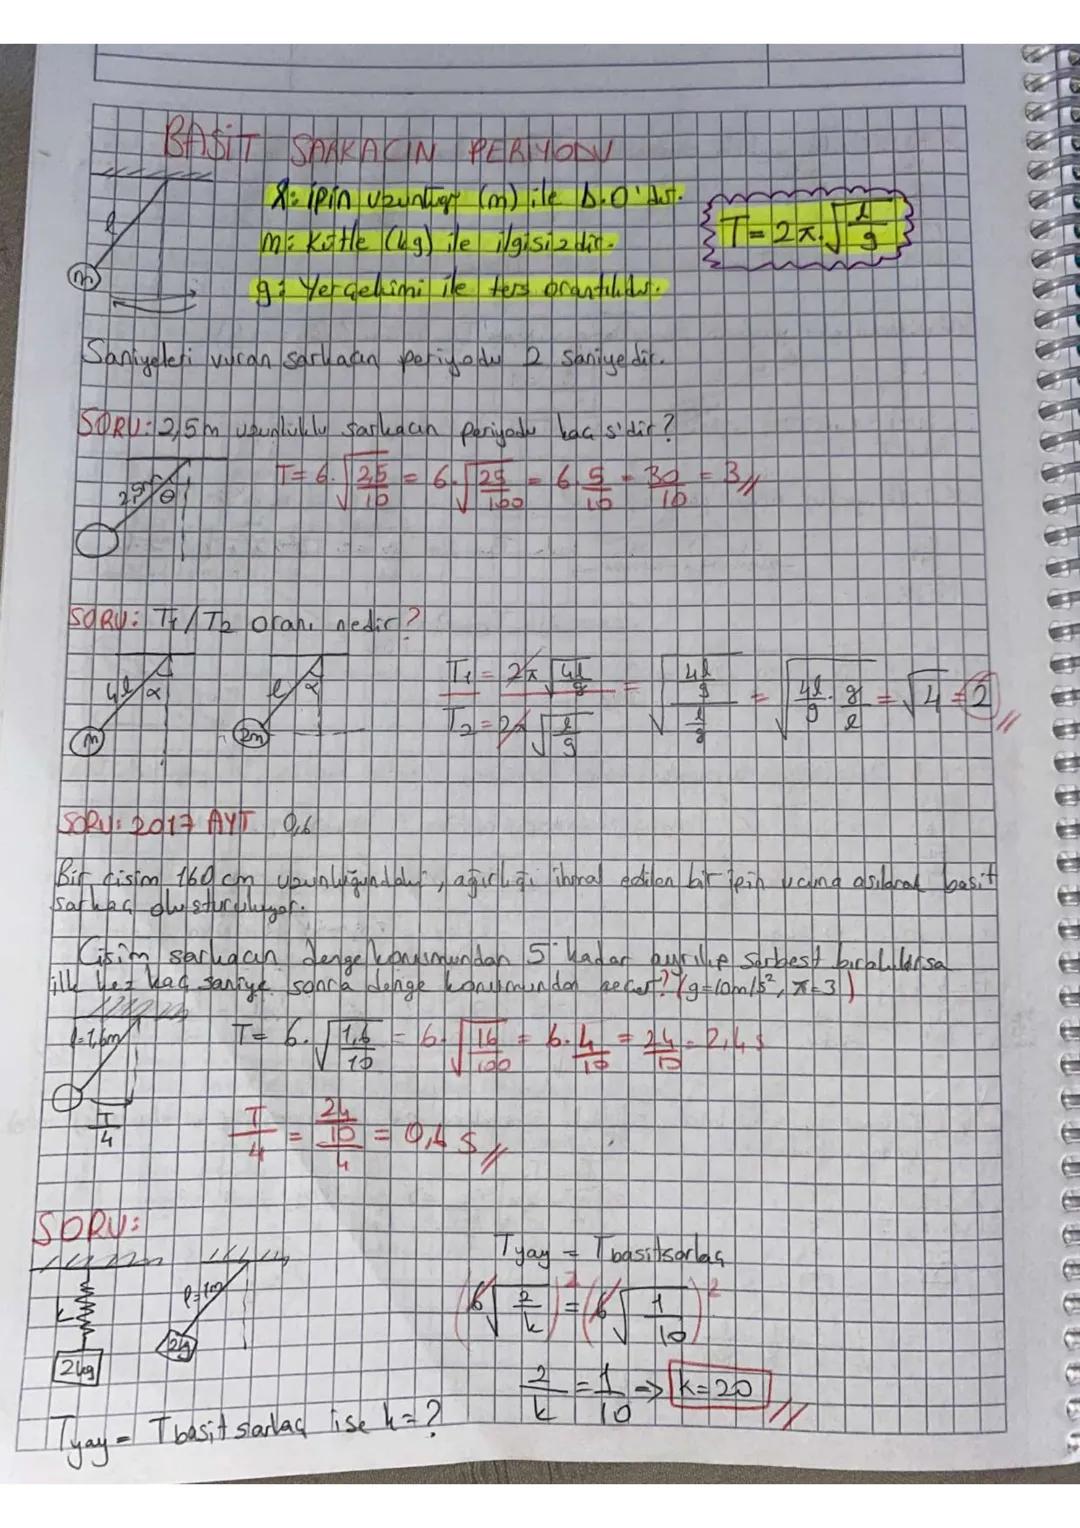 BASİT SARKACIN PERİYODU
l: İpin uzunluğu (m) ile D.O'dır.
m: Kütle (kg) ile ilgisizdir.
g: Yerçekimi ile ters orantılıdır.
T=2π.√l/g
l
m
Saniyeleri vuran sarkacın periyodu 2 saniyedir.
SORU: 2,5m uzunluklu sarkacın periyodu kaç s'dir?
2,5m θ
T=6.√2,5/10 = 6.√25/100 = 6.5/10 = 30/10 = 3//
SORU: T1/T2 oranı nedir?
4l α m
l α 2m
T1/T2 = 2π√4l/g / 2π√l/g = √4l/g / l/g = √4l/g . g/l = √4 = 2//
SORU: 2017 AYT 0,6
Bir cisim 160 cm uzunluğundaki, ağırlığı ihmal edilen bir ipin ucuna asılarak basit
sarkaç oluşturuluyor.
Cisim sarkacın denge konumundan 5° kadar ayrılıp serbest bırakılırsa
ilk kez kaç saniye sonra denge konumundan geçer? (g=10m/s², π=3)
l=1,6m
T= 6.√1,6/10 = 6.√16/100 = 6.4/10 = 24/10 = 2,4 s
T/4
T/4 = 24/10/4 = 0,6 s//
SORU:
k
2kg
l=1m
2kg
Tyay = Tbasitsarkaç
(6√2/k)² = (6√1/10)²
2/k = 1/10 => k=20//
Tyay = Tbasit sarkaç ise k=?